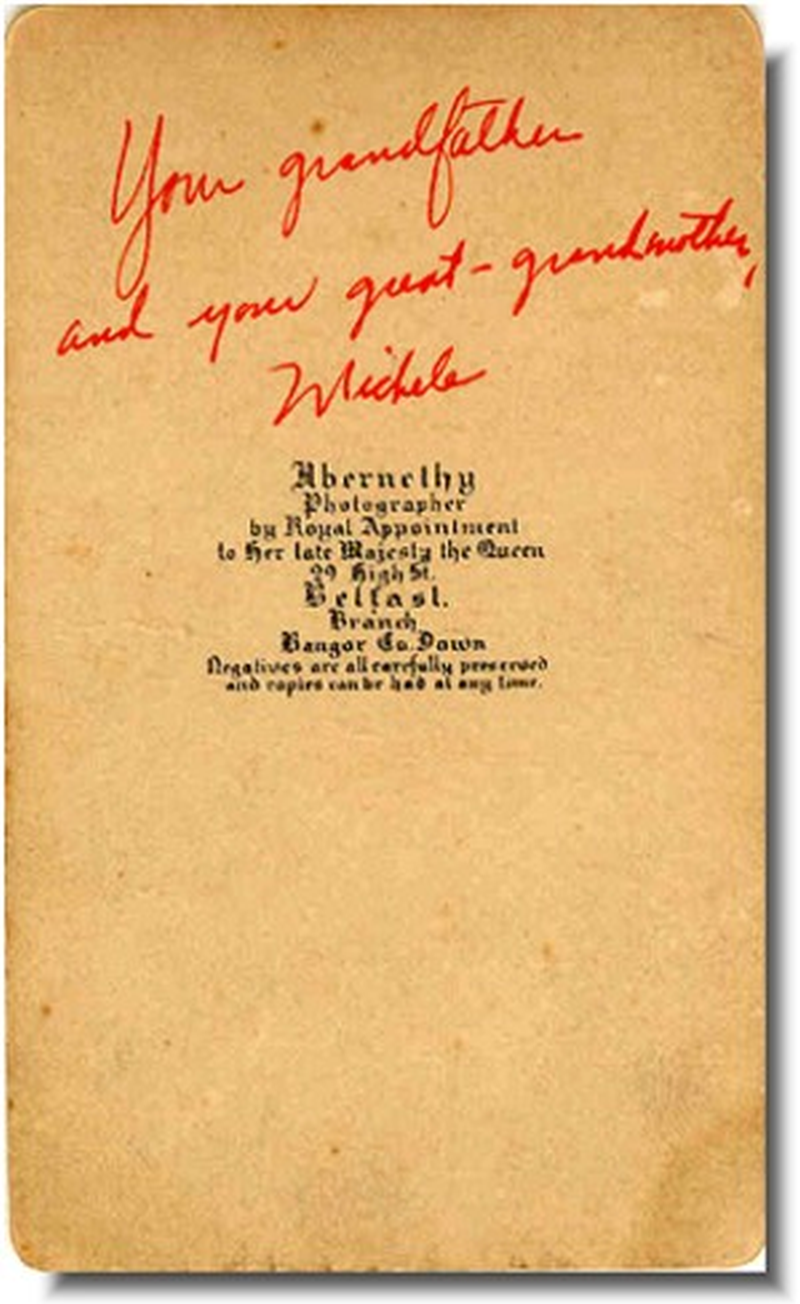 Your grandfather
and your great-grandmother,
Michele
Abernethy
Photographer
by Royal Appointment
to Her late Majesty the Queen
29 High St.
Belfast.
Branch
Bangor Co. Down
Negatives are all carefully preserved
and copies can be had at any time.